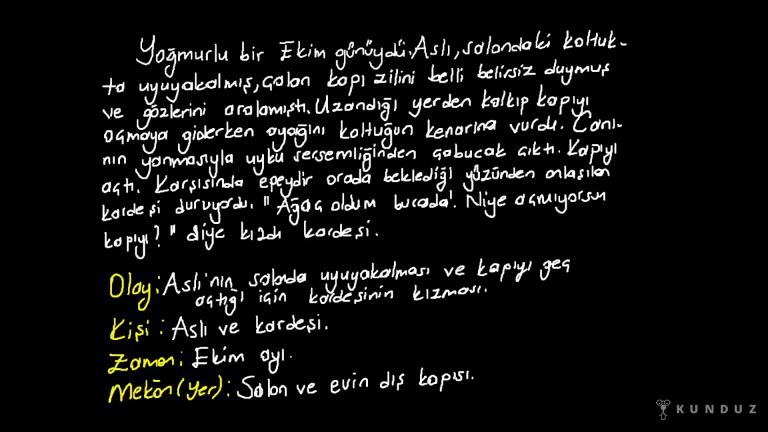 Yağmurlu bir Ekim günüydü. Aslı, salondaki koltuk-
ta uyuyakalmış, çalan kapı zilini belli belirsiz duymuş
ve gözlerini aralamıştı. Uzandığı yerden kalkıp kapıyı
açmaya giderken ayağını koltuğun kenarına vurdu. Canı-
nın yanmasıyla uyku sersemliğinden çabucak çıktı. Kapıyı
açtı. Karşısında epeydir orada beklediği yüzünden anlaşılan
kardeşi duruyordu. "Ağaç oldum burada! Niye açmıyorsun
kapıyı?" diye kızdı kardeşi.
Olay: Aslı'nın salonda uyuyakalması ve kapıyı geç
açtığı için kardeşinin kızması.
Kişi: Aslı ve kardeşi.
Zaman: Ekim ayı.
Mekân (Yer): Salon ve evin dış kapısı.
KUNDUZ